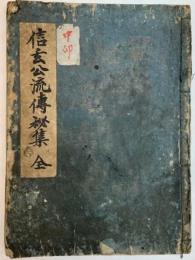 信玄公流傳秘集 全
中印